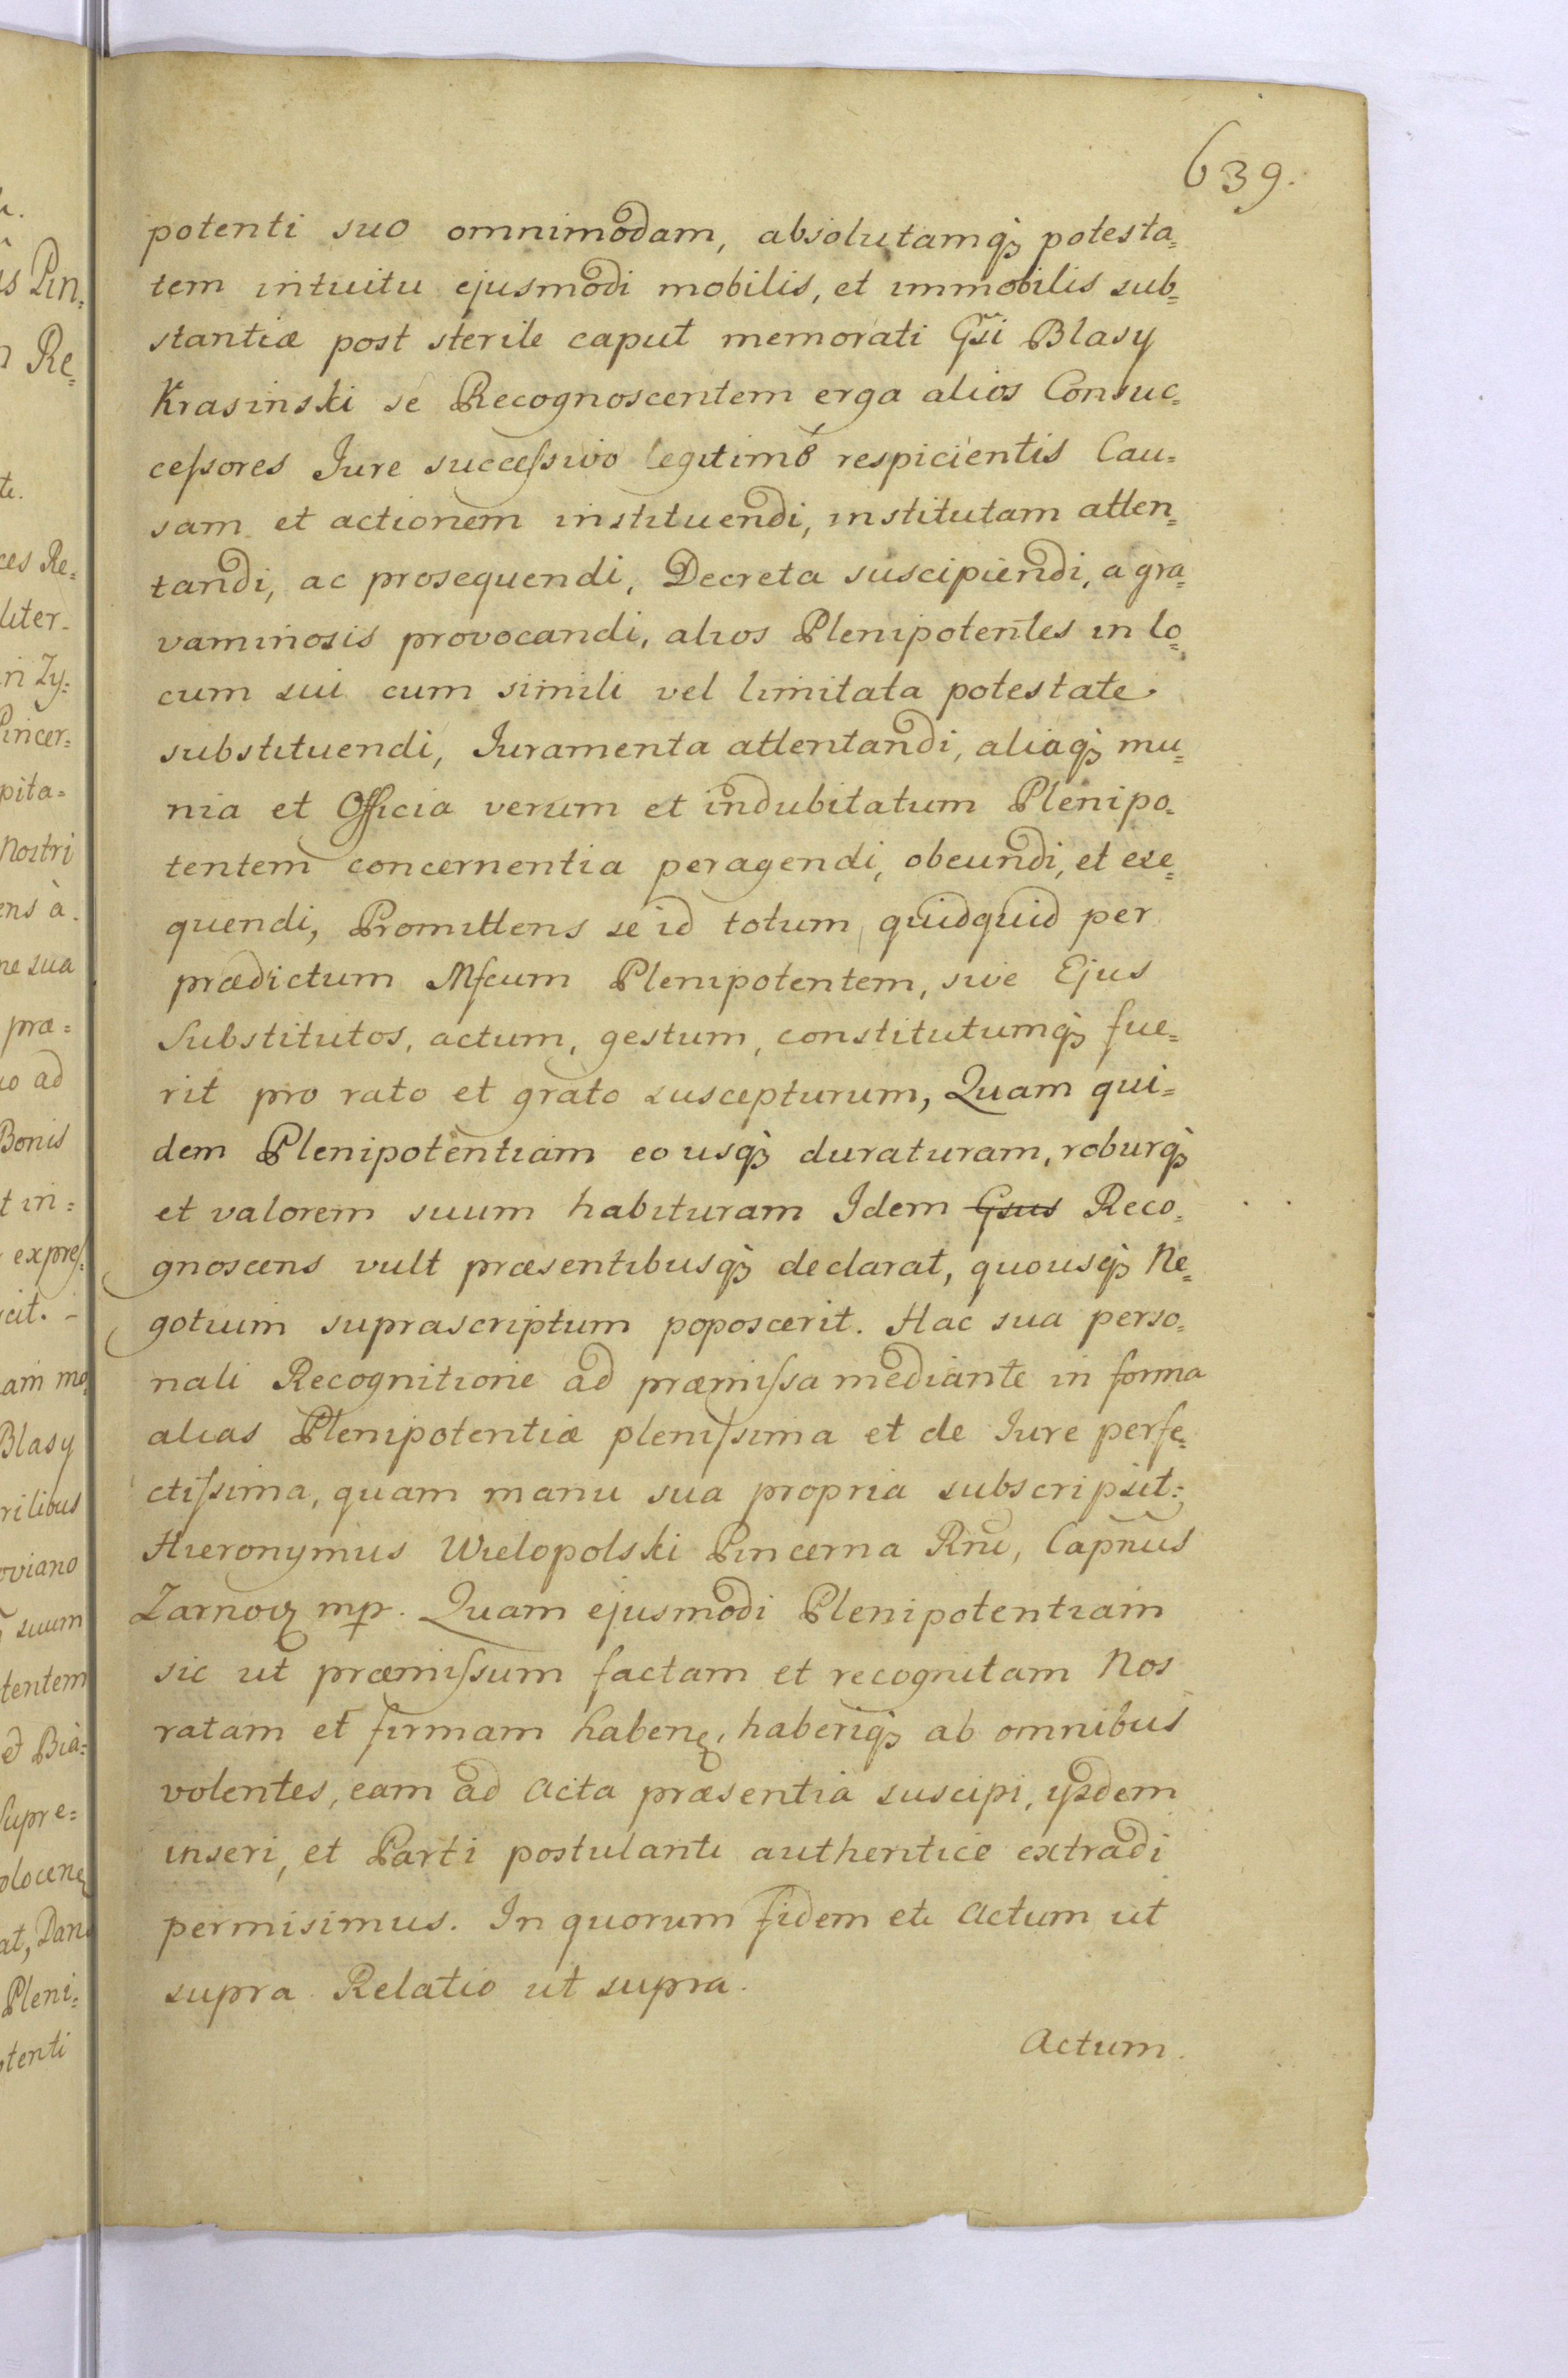 639.
potenti suo omnimodam, absolutamq₃ potesta=
tem intuitu ejusmodi mobilis, et immobilis sub=
stantiæ post sterile caput memorati Gsi Blasy
Krasinski se Recognoscentem erga alios Consuc=
ceſsores Iure succeſsivo legitimo respicientis Cau=
sam et actionem instituendi, institutam atten=
tandi, ac prosequendi, Decreta suscipiendi, a gra=
vaminosis provocandi, alios Plenipotentes in lo=
cum sui cum simili vel limitata potestate
substituendi, Iuramenta attentandi, aliaq₃ mu=
nia et Officia verum et indubitatum Plenipo=
tentem concernentia peragendi, obeundi, et exe=
quendi, Promittens se id totum, quidquid per
prædictum Mfcum Plenipotentem, sive Ejus
Substitutos, actum, gestum, constitutumq₃ fue=
rit pro rato et grato suscepturum, Quam qui=
dem Plenipotentiam eo usq₃ duraturam, roburq₃
et valorem suum habituram Idem Gsus Reco=
gnoscens vult præsentibusq₃ declarat, quousq₃ Ne=
gotium suprascriptum poposcerit. Hac sua perso=
nali Recognitione ad præmiſsa mediante in forma
alias Plenipotentiæ pleniſsima et de Iure perfe=
ctiſsima, quam manu sua propria subscripsit:
Hieronymus Wielopolski Pincerna Rni, Capnus
Zarnoꝫ mp. Quam ejusmodi Plenipotentiam
sic ut præmiſsum factam et recognitam Nos
ratam et firmam habenꝫ, haberiq₃ ab omnibus
volentes, eam ad Acta præsentia suscipi, ijsdem
inseri, et Parti postulanti authentice extradi
permisimus. In quorum fidem etc Actum ut
supra. Relatio ut supra.
Actum.